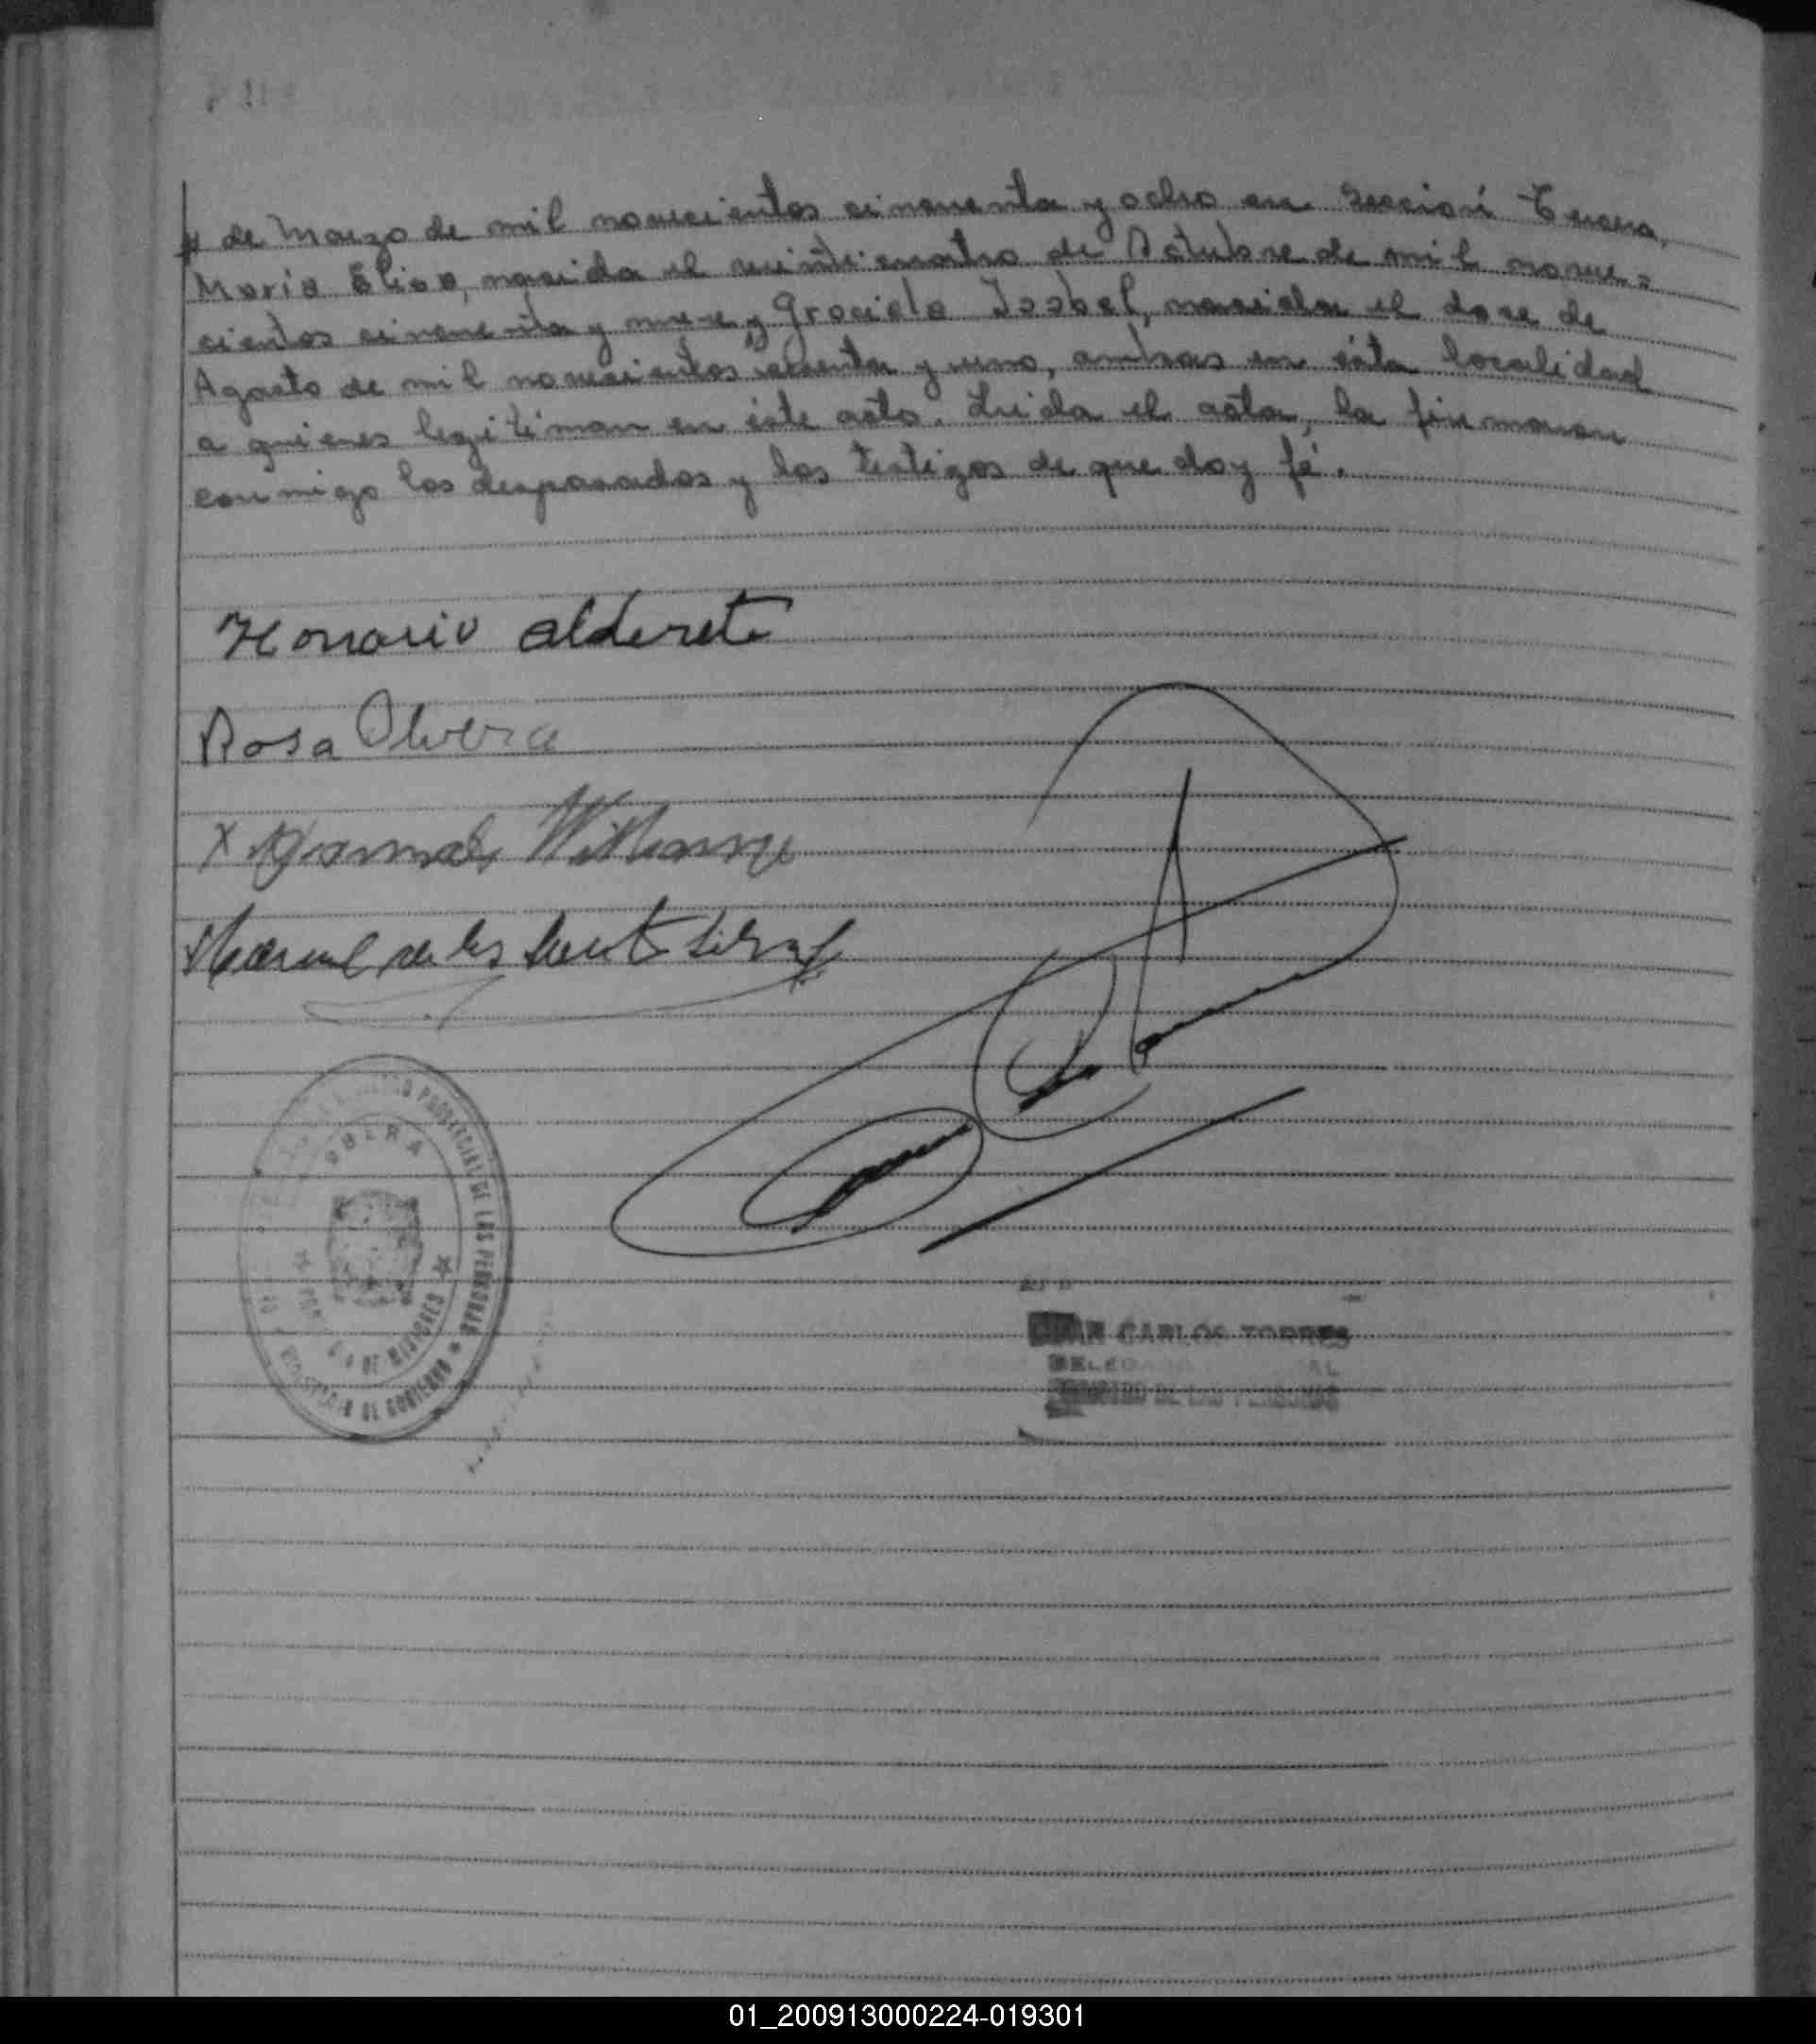 de Marzo de mil novecientos cincuenta y ocho en Sección Tercera,
María Elisa, nacida el veinticuatro de Octubre de mil nove=
cientos cincuenta y nueve y Graciela Isabel, nacida el doce de
Agosto de mil novecientos sesenta y uno, ambas en ésta localidad
a quienes legitiman en éste acto. Leida el acta, la firmaron
conmigo los desposados y los testigos de que doy fé.
Honorio alderete
Rosa Olivera
X
Manuel de los Silva
PROVINCIAL DE LAS PERSONAS
OBERA
DE MISIONES
DE GOBIERNO
JUAN CARLOS TORRES
DELEGADO
REGISTRO DE LAS PERSONAS
01_200913000224-019301